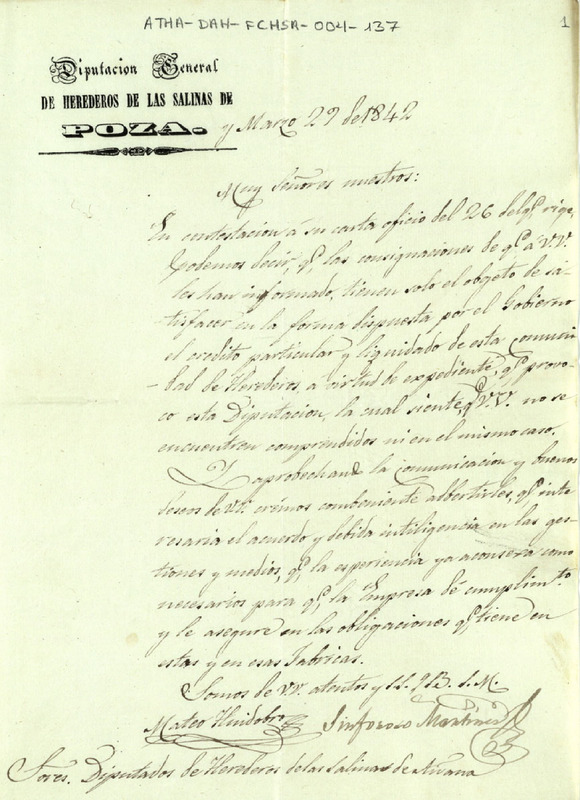 ATHA-DAH-FCHSA-004-137
1
Diputacion General
DE HEREDEROS DE LAS SALINAS DE
POZA.
y Marzo 29 de 1842
Muy Señores nuestros:
En contestacion a su carta oficio del 26 del qe. rige,
Podemos decir, qe. las consignaciones de qe. a V.V.
les han informado, tienen solo el objeto de sa-
tisfacer en la forma dispuesta por el Gobierno
el credito particular y liquidado de esta comuni-
-dad de Herederos, a virtud de expediente, qe. provo-
co esta Diputacion, la cual siente qe. V.V. no se
encuentren comprendidos ni en el mismo caso.
Y aprobechand la comunicacion y buenos
deseos de VV. creimos combeniente albertirles, qe. inte
resaria el acuerdo y debida intiligencia en las ges-
tiones y medios, qe. la esperiencia ya aconseja como
necesarios para qe. la Empresa dé cumplimto
y le asegure en las obligaciones qe. tiene en
estas y en esas Fabricas.
Somos de VV. atentos y S.S. q B. S. M.
Mateo Huidobro Sinforoso Martinez
Sores. Diputados de Herederos de las Salinas de Añana